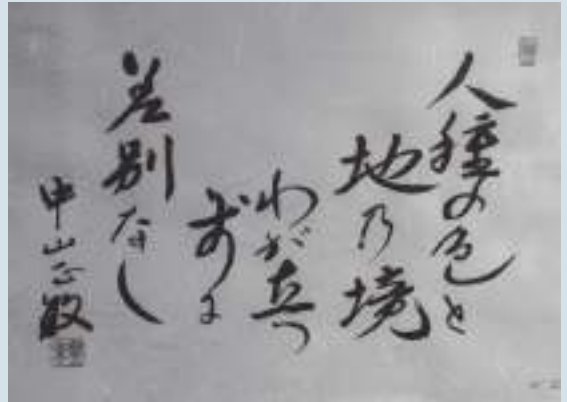 人種の色と
地乃境
わが立つ
前に
差別なし
中山正敏